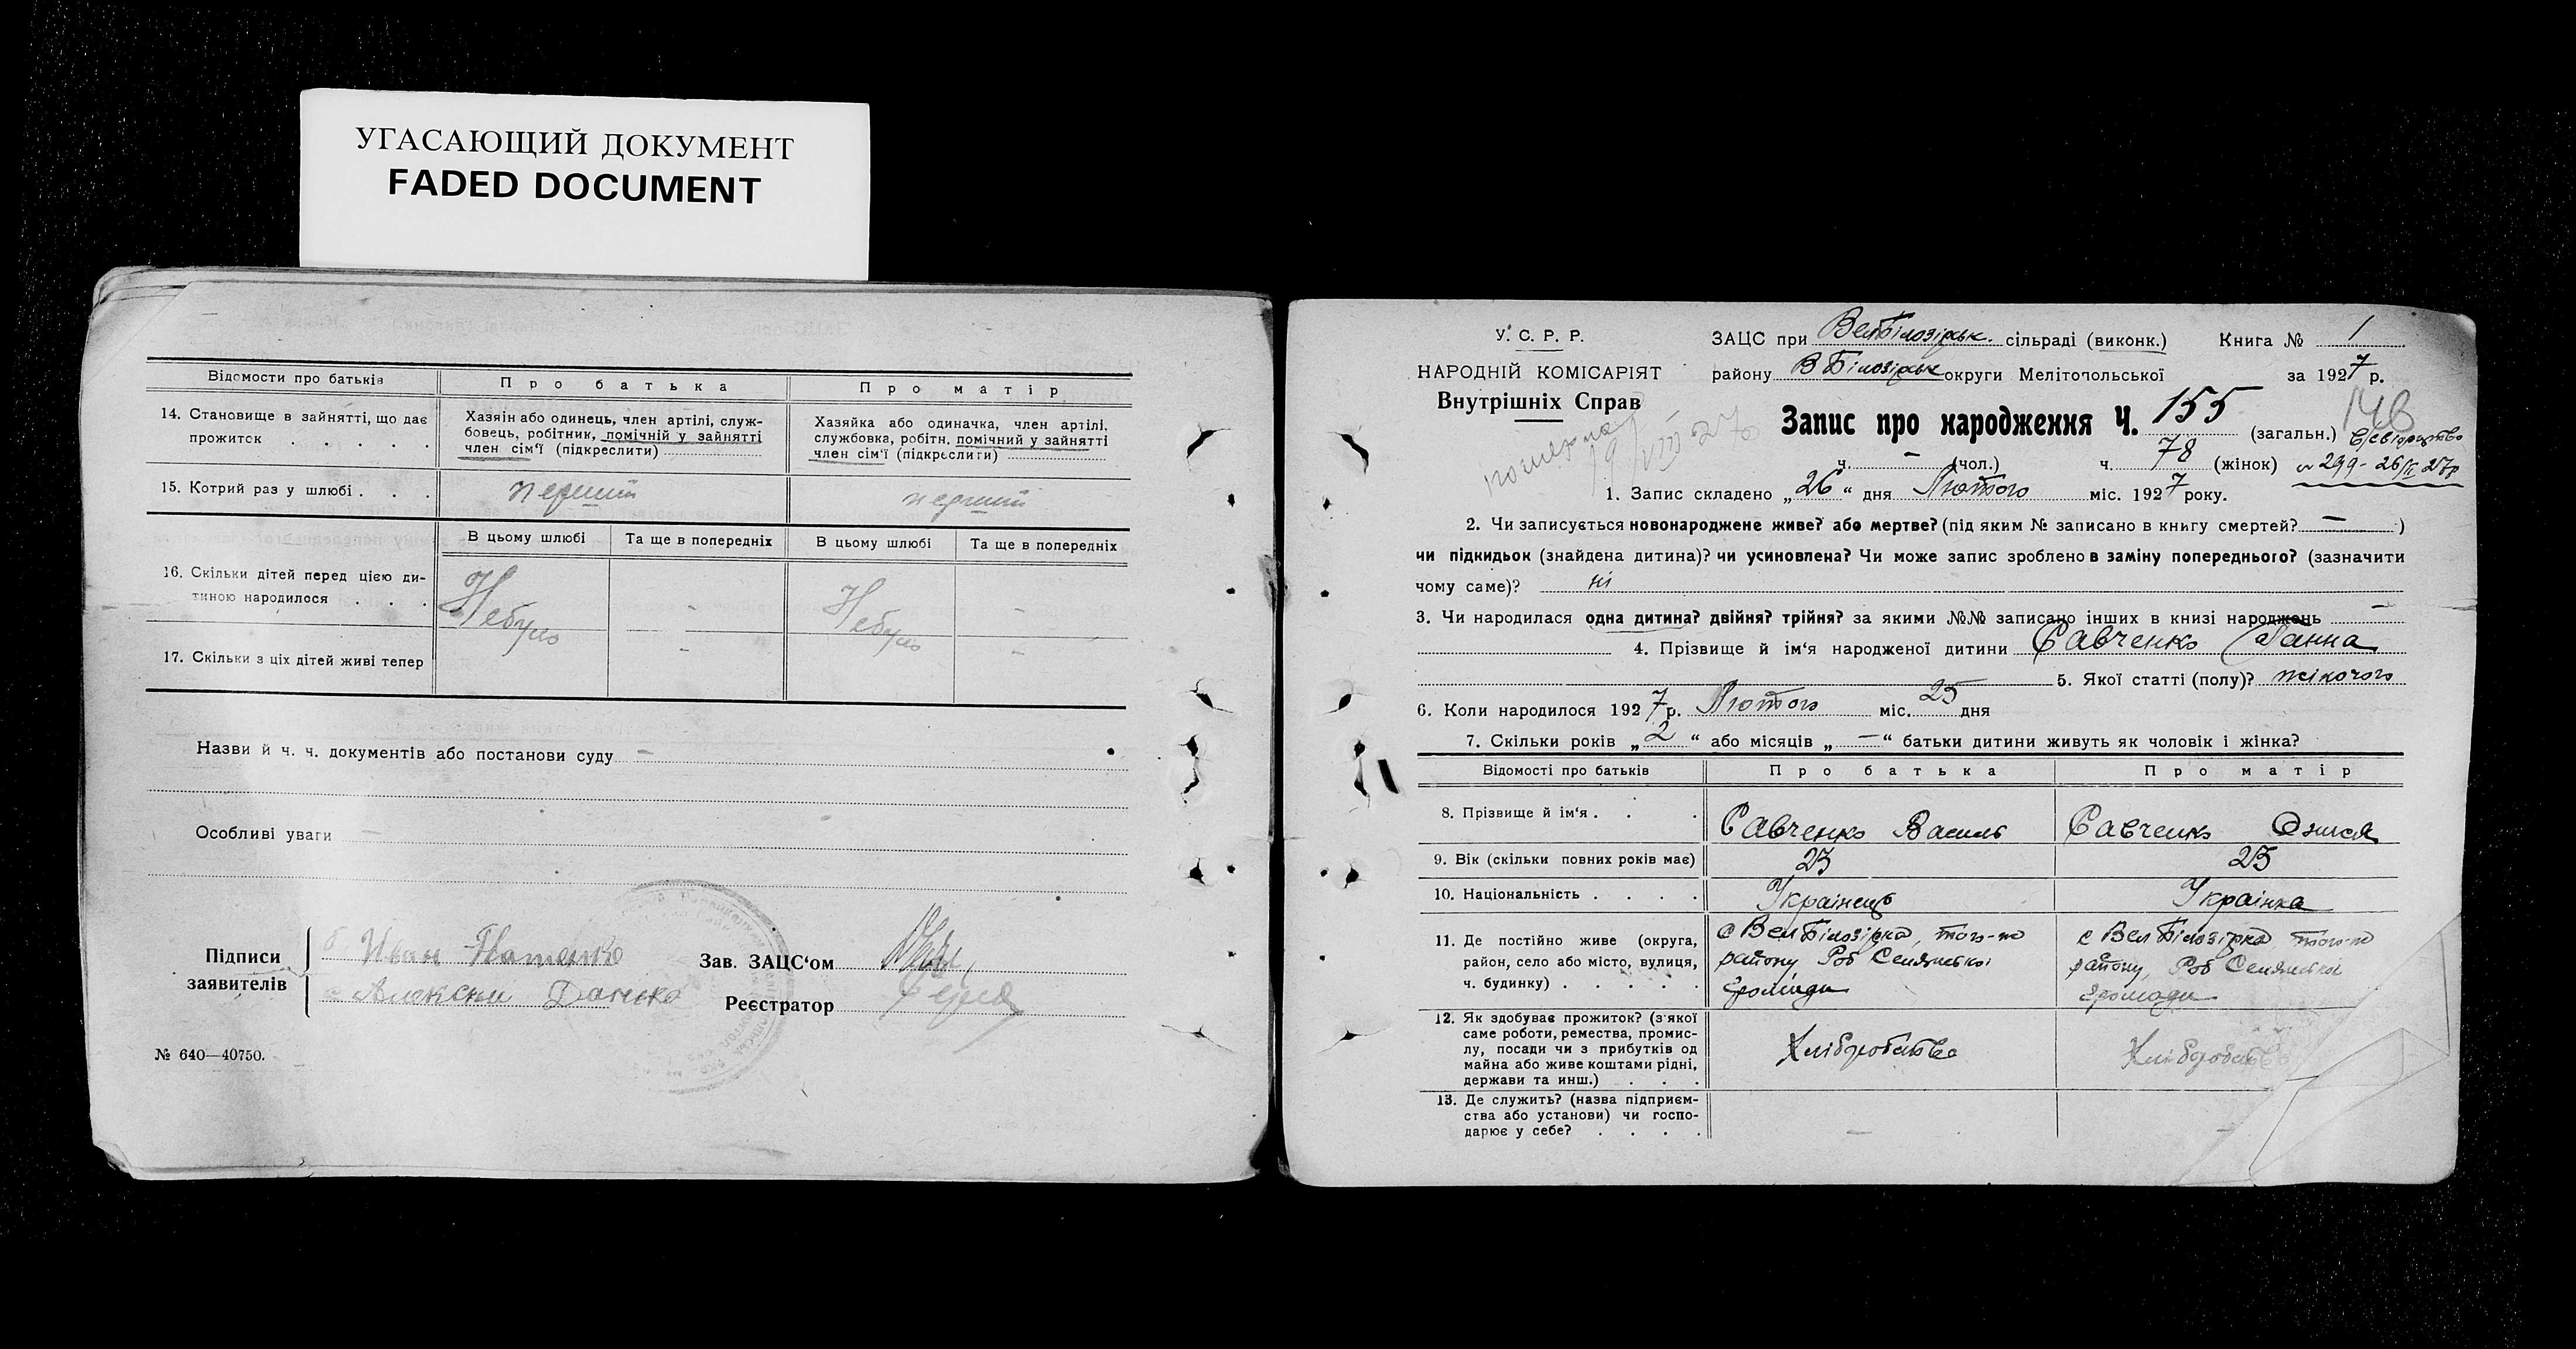 УГАСАЮЩИЙ ДОКУМЕНТ
FADED DOCUMENT
Відомости про батьків
Про батька
Про матір
14. Становище в зайнятті, що дає прожиток . . . . .
Хазяін або одинець, член артілі, служ-
бовець, робітник, помічній у зайнятті
член сім'ї (підкреслити)
Хазяйка або одиначка, член артілі,
службовка, робітн. помічний у зайнятті
член сім'ї (підкреслити)
15. Котрий раз у шлюбі . . .
перший
перший
В цьому шлюбі
Та ще в попередніх
В цьому шлюбі
Та ще в попередніх
16. Скільки дітей перед цією ди-
тиною народилося . . .
Небуло
-
Небуло
-
17. Скільки з ціх дітей живі тепер
-
-
Назви й ч. ч. документів або постанови суду —
Особливі уваги —
Підписи
заявителів
Иван
Зав. ЗАЦС'ом
Реєстратор
№ 640—40750.
У. С. Р. Р.
НАРОДНІЙ КОМІСАРІЯТ
Внутрішніх Справ
ЗАЦС при ВелБілозірськ. сільраді (виконк.) Книга № 1
району В Білозірськ округи Мелітопольської за 1927 р.
Запис про народження Ч. 155 (загальн.)
146
ч. — (чол.) ч. 78 (жінок)
№ 299 - 26/II 27р
1. Запис складено „26“ дня Лютого міс. 1927 року.
2. Чи записується новонароджене живе? або мертве? (під яким № записано в книгу смертей? — )
чи підкидьок (знайдена дитина)? чи усиновлена? Чи може запис зроблено в заміну попереднього? (зазначити
чому саме)? ні
3. Чи народилася одна дитина? двійня? трійня? за якими №№ записано інших в книзі народжень —
4. Прізвище й ім'я народженої дитини Савченко Ганна
5. Якої статті (полу)? жіночого
6. Коли народилося 1927 р. Лютого міс. 25 дня
7. Скільки років „2“ або місяців „—“ батьки дитини живуть як чоловік і жінка?
Відомості про батьків
Про батька
Про матір
8. Прізвище й ім'я . . .
Савченко Василь
Савченко
9. Вік (скільки повних років має)
23
23
10. Національність . . . .
Українець
Українка
11. Де постійно живе (округа,
район, село або місто, вулиця,
ч. будинку) . . . . .
с ВелБілозірка, того-ж
району Роб Селянської
громади
с Вел Білозірка того-ж
району, Роб Селянської
громади
12. Як здобуває прожиток? (з якої
саме роботи, ремества, промис-
лу, посади чи з прибутків од
майна або живе коштами рідні,
держави та инш.) . . .
Хліборобство
Хліборобство
13. Де служить? (назва підприєм-
ства або установи) чи госпо-
дарює у себе? . . . .
—
-